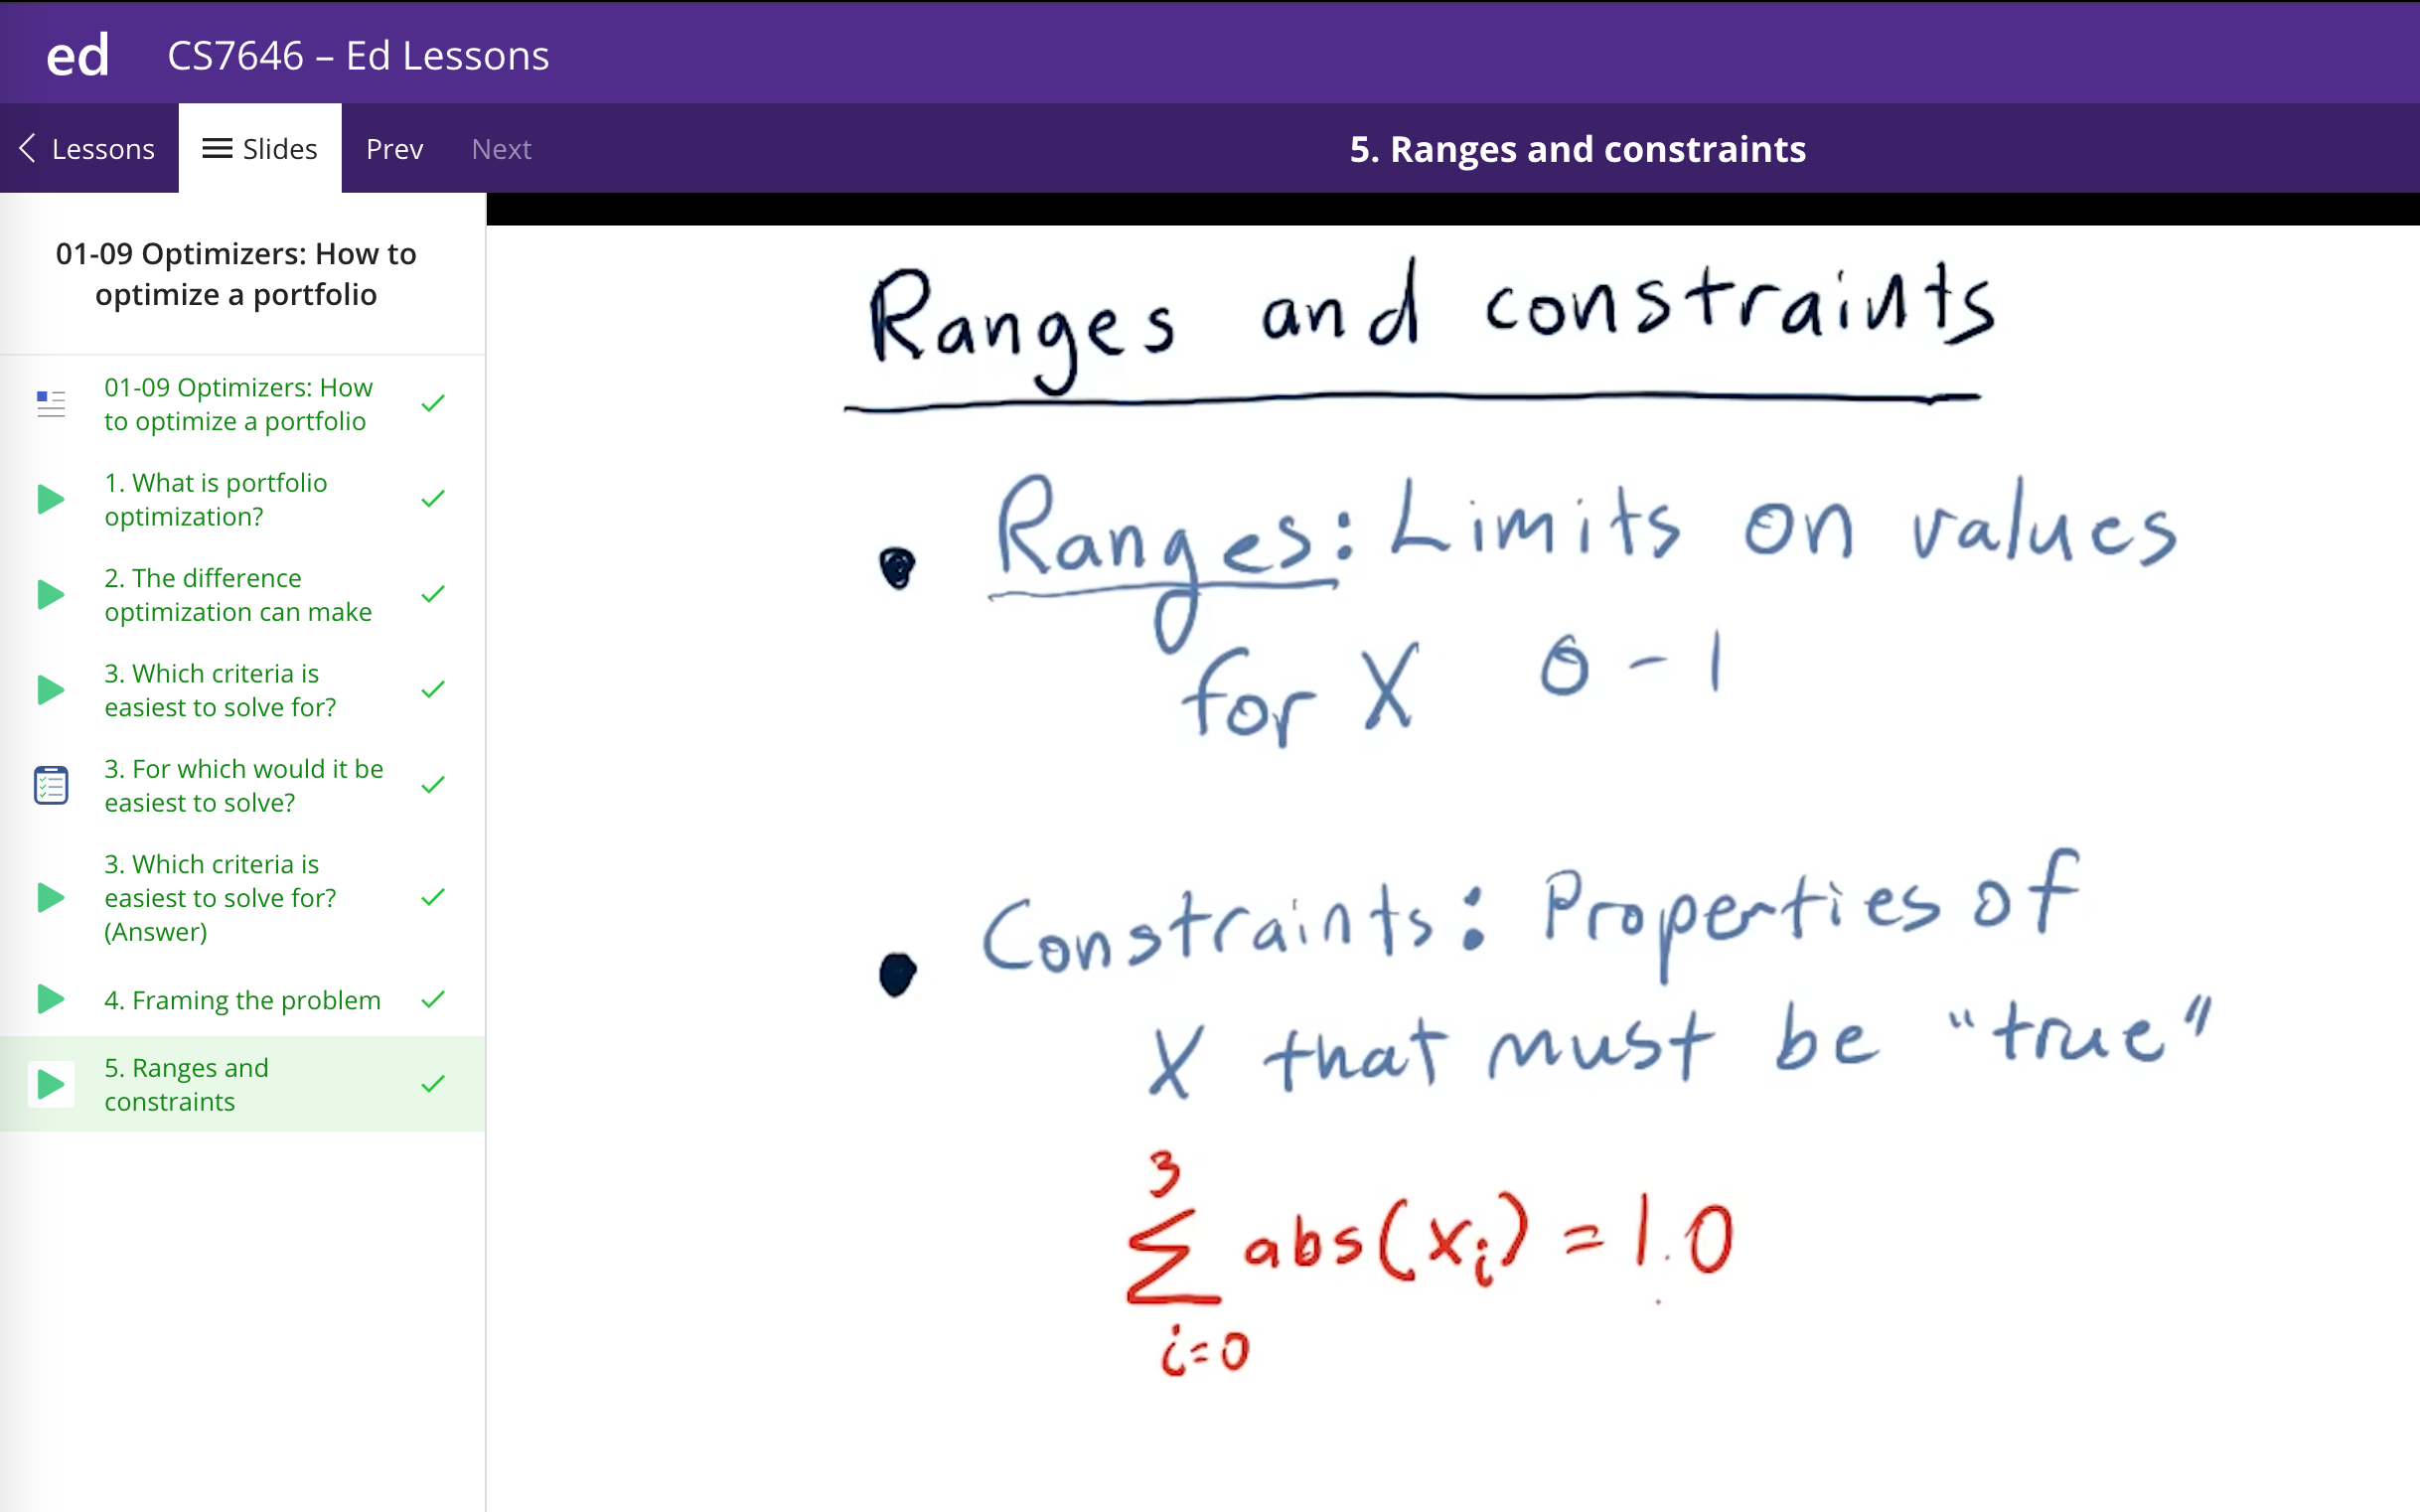 ed CS7646 – Ed Lessons
Lessons Slides Prev Next 5. Ranges and constraints
01-09 Optimizers: How to
optimize a portfolio
01-09 Optimizers: How
to optimize a portfolio
1. What is portfolio
optimization?
2. The difference
optimization can make
3. Which criteria is
easiest to solve for?
3. For which would it be
easiest to solve?
3. Which criteria is
easiest to solve for?
(Answer)
4. Framing the problem
5. Ranges and
constraints
Ranges and constraints
• Ranges: Limits on values
for X 0 - 1
• Constraints: Properties of
X that must be "true"
3
∑ abs(xᵢ) = 1.0
i=0